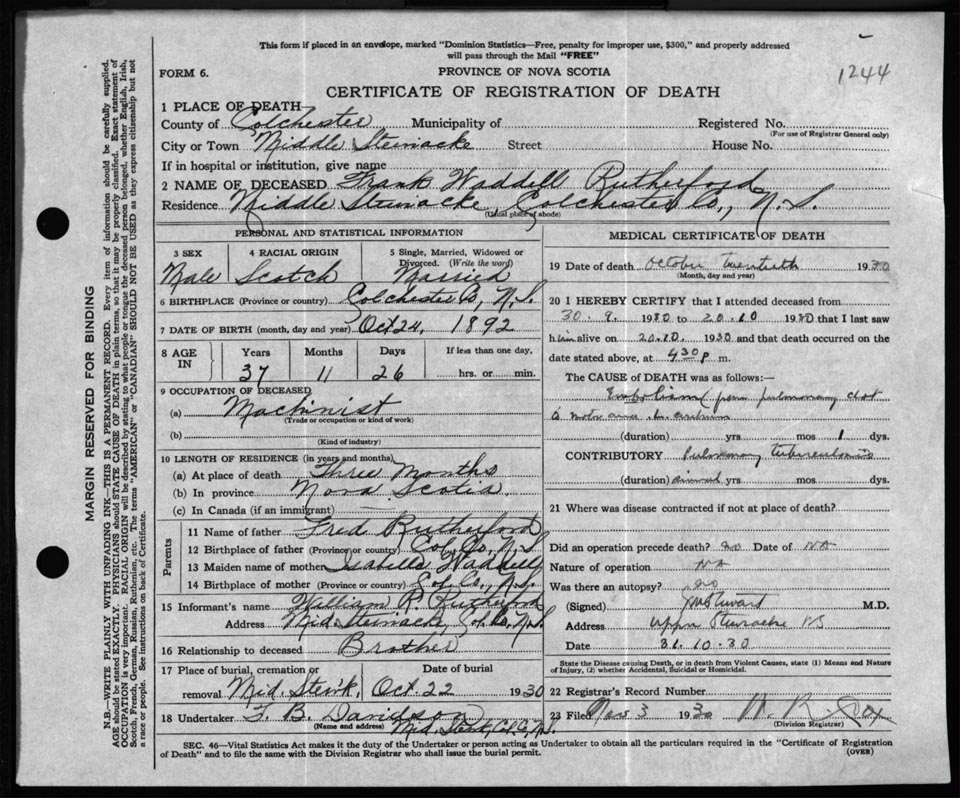 This form if placed in an envelope, marked "Dominion Statistics—Free, penalty for improper use, $300," and properly addressed
will pass through the Mail "FREE"
1244
FORM 6.
PROVINCE OF NOVA SCOTIA
CERTIFICATE OF REGISTRATION OF DEATH
1 PLACE OF DEATH
County of Colchester Municipality of Registered No.
(For use of Registrar General only)
City or Town Middle Steiwacke Street House No.
If in hospital or institution, give name
2 NAME OF DECEASED Frank Waddell Rutherford
Residence Middle Steiwacke, Colchester Co., N.S.
(Usual place of abode)
PERSONAL AND STATISTICAL INFORMATION
3 SEX 4 RACIAL ORIGIN 5 Single, Married, Widowed or Divorced. (Write the word)
Male Scotch Married
6 BIRTHPLACE (Province or country) Colchester Co, N.S.
7 DATE OF BIRTH (month, day and year) Oct 24, 1892
8 AGE IN Years Months Days If less than one day,
37 11 26 hrs. or min.
9 OCCUPATION OF DECEASED
(a) Machinist
(Trade or occupation or kind of work)
(b)
(Kind of industry)
10 LENGTH OF RESIDENCE (in years and months)
(a) At place of death Three Months
(b) In province Nova Scotia
(c) In Canada (if an immigrant)
Parents
11 Name of father Fred Rutherford
12 Birthplace of father (Province or country) Col. Co, N.S.
13 Maiden name of mother Isabella Waddell
14 Birthplace of mother (Province or country) Col. Co., N.S.
15 Informant's name William R. Rutherford
Address Mid. Steiwacke, Col. Co. N.S.
16 Relationship to deceased Brother
17 Place of burial, cremation or removal Date of burial
Mid. Stew'k, Oct 22 1930
18 Undertaker F. B. Davidson
(Name and address) Mid. Stewk, Col. Co, N.S.
MEDICAL CERTIFICATE OF DEATH
19 Date of death October twentieth 1930
(Month, day and year)
20 I HEREBY CERTIFY that I attended deceased from
30. 9. 1930 to 20.10 1930 that I last saw
him alive on 20.10. 1930 and that death occurred on the
date stated above, at 4 30 p m.
The CAUSE of DEATH was as follows:—
Embolism from pulmonary clot
(duration) yrs. mos 1 dys.
CONTRIBUTORY Pulmonary tuberculosis
(duration) yrs mos dys.
21 Where was disease contracted if not at place of death?
Did an operation precede death? no Date of NA
Nature of operation NA
Was there an autopsy? no
(Signed) M.D.
Address Upper Stewiacke NS
Date 31.10.30
State the Disease causing Death, or in death from Violent Causes, state (1) Means and Nature
of Injury, (2) whether Accidental, Suicidal or Homicidal.
22 Registrar's Record Number
23 Filed Nov 3 1930
(Division Registrar)
SEC. 46—Vital Statistics Act makes it the duty of the Undertaker or person acting as Undertaker to obtain all the particulars required in the "Certificate of Registration
of Death" and to file the same with the Division Registrar who shall issue the burial permit.
(OVER)
MARGIN RESERVED FOR BINDING
N.B.—WRITE PLAINLY WITH UNFADING INK—THIS IS A PERMANENT RECORD. Every item of information should be carefully supplied.
AGE should be stated EXACTLY. PHYSICIANS should STATE CAUSE OF DEATH in plain terms, so that it may be properly classified. Exact statement of
OCCUPATION is very important. RACIAL ORIGIN will be described by stating to what people or tongue the deceased person belonged, whether English, Irish,
Scotch, French, German, Russian, Ruthenian, etc. The terms "AMERICAN" or "CANADIAN" SHOULD NOT BE USED as they express citizenship but not
a race or people. See instructions on back of Certificate.